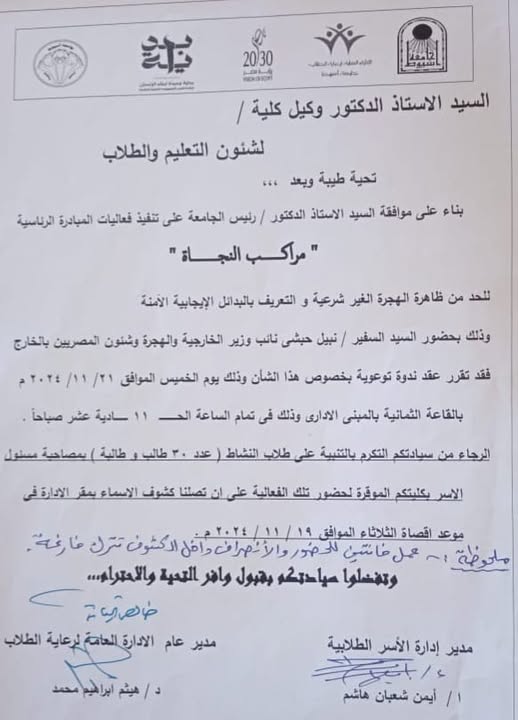 20/30
جامعة أسيوط
السيد الاستاذ الدكتور وكيل كلية /
لشئون التعليم والطلاب
تحية طيبة وبعد ،،،
بناء على موافقة السيد الاستاذ الدكتور / رئيس الجامعة على تنفيذ فعاليات المبادرة الرئاسية
" مراكب النجاة "
للحد من ظاهرة الهجرة الغير شرعية و التعريف بالبدائل الإيجابية الآمنة
وذلك بحضور السيد السفير / نبيل حبشى نائب وزير الخارجية والهجرة وشئون المصريين بالخارج
فقد تقرر عقد ندوة توعوية بخصوص هذا الشأن وذلك يوم الخميس الموافق ٢١/ ١١/ ٢٠٢٤ م
بالقاعة الثمانية بالمبنى الادارى وذلك فى تمام الساعة الحـــ ١١ ــادية عشر صباحاً .
الرجاء من سيادتكم التكرم بالتنبية على طلاب النشاط ( عدد ٣٠ طالب و طالبة ) بمصاحبة مسئول
الاسر بكليتكم الموقرة لحضور تلك الفعالية على ان تصلنا كشوف الاسماء بمقر الادارة فى
موعد اقصاة الثلاثاء الموافق ١٩ / ١١ / ٢٠٢٤ م .
ملحوظة :~ عمل خانتين للحضور والأنصراف داخل الكشوف تترك فارغة .
وتفضلوا سيادتكم بقبول وافر التحية والاحترام...
مدير إدارة الأسر الطلابية
ا / أيمن شعبان هاشم
مدير عام الادارة العامة لرعاية الطلاب
د / هيثم ابراهيم محمد